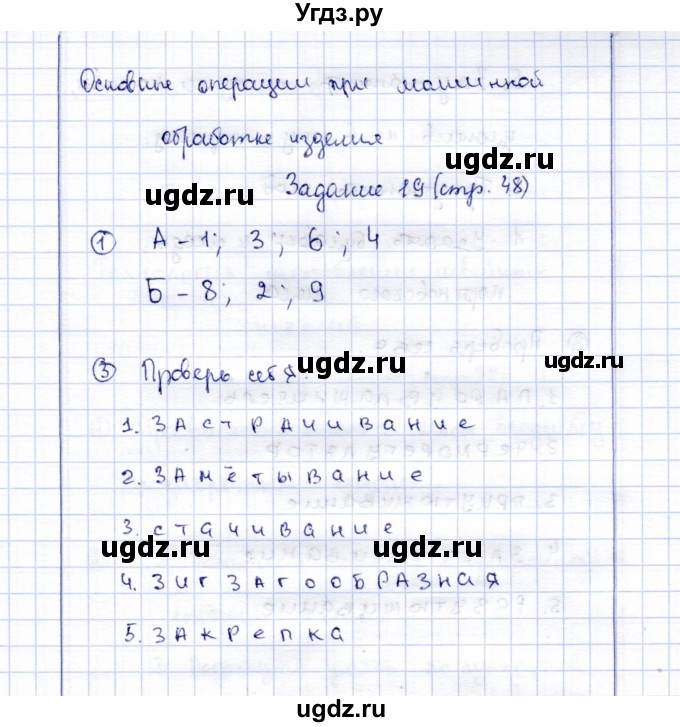 Угдз.ру
Основные операции при машинной
обработке изделия
ugdz.ru
Задание 19 (стр. 48)
① А – 1; 3; 6; 4
Б – 8; 2; 9
ugdz.ru
ugdz.ru
ugdz.ru
③ Проверь себя:
1. ЗАСТРАЧИВАНИЕ
ugdz.ru
2. ЗАМЁТЫВАНИЕ
ugdz.ru
3. СТАЧИВАНИЕ
ugdz.ru
ugdz.ru
4. ЗИГЗАГООБРАЗНАЯ
5. ЗАКРЕПКА
ugdz.ru
ugdz.ru